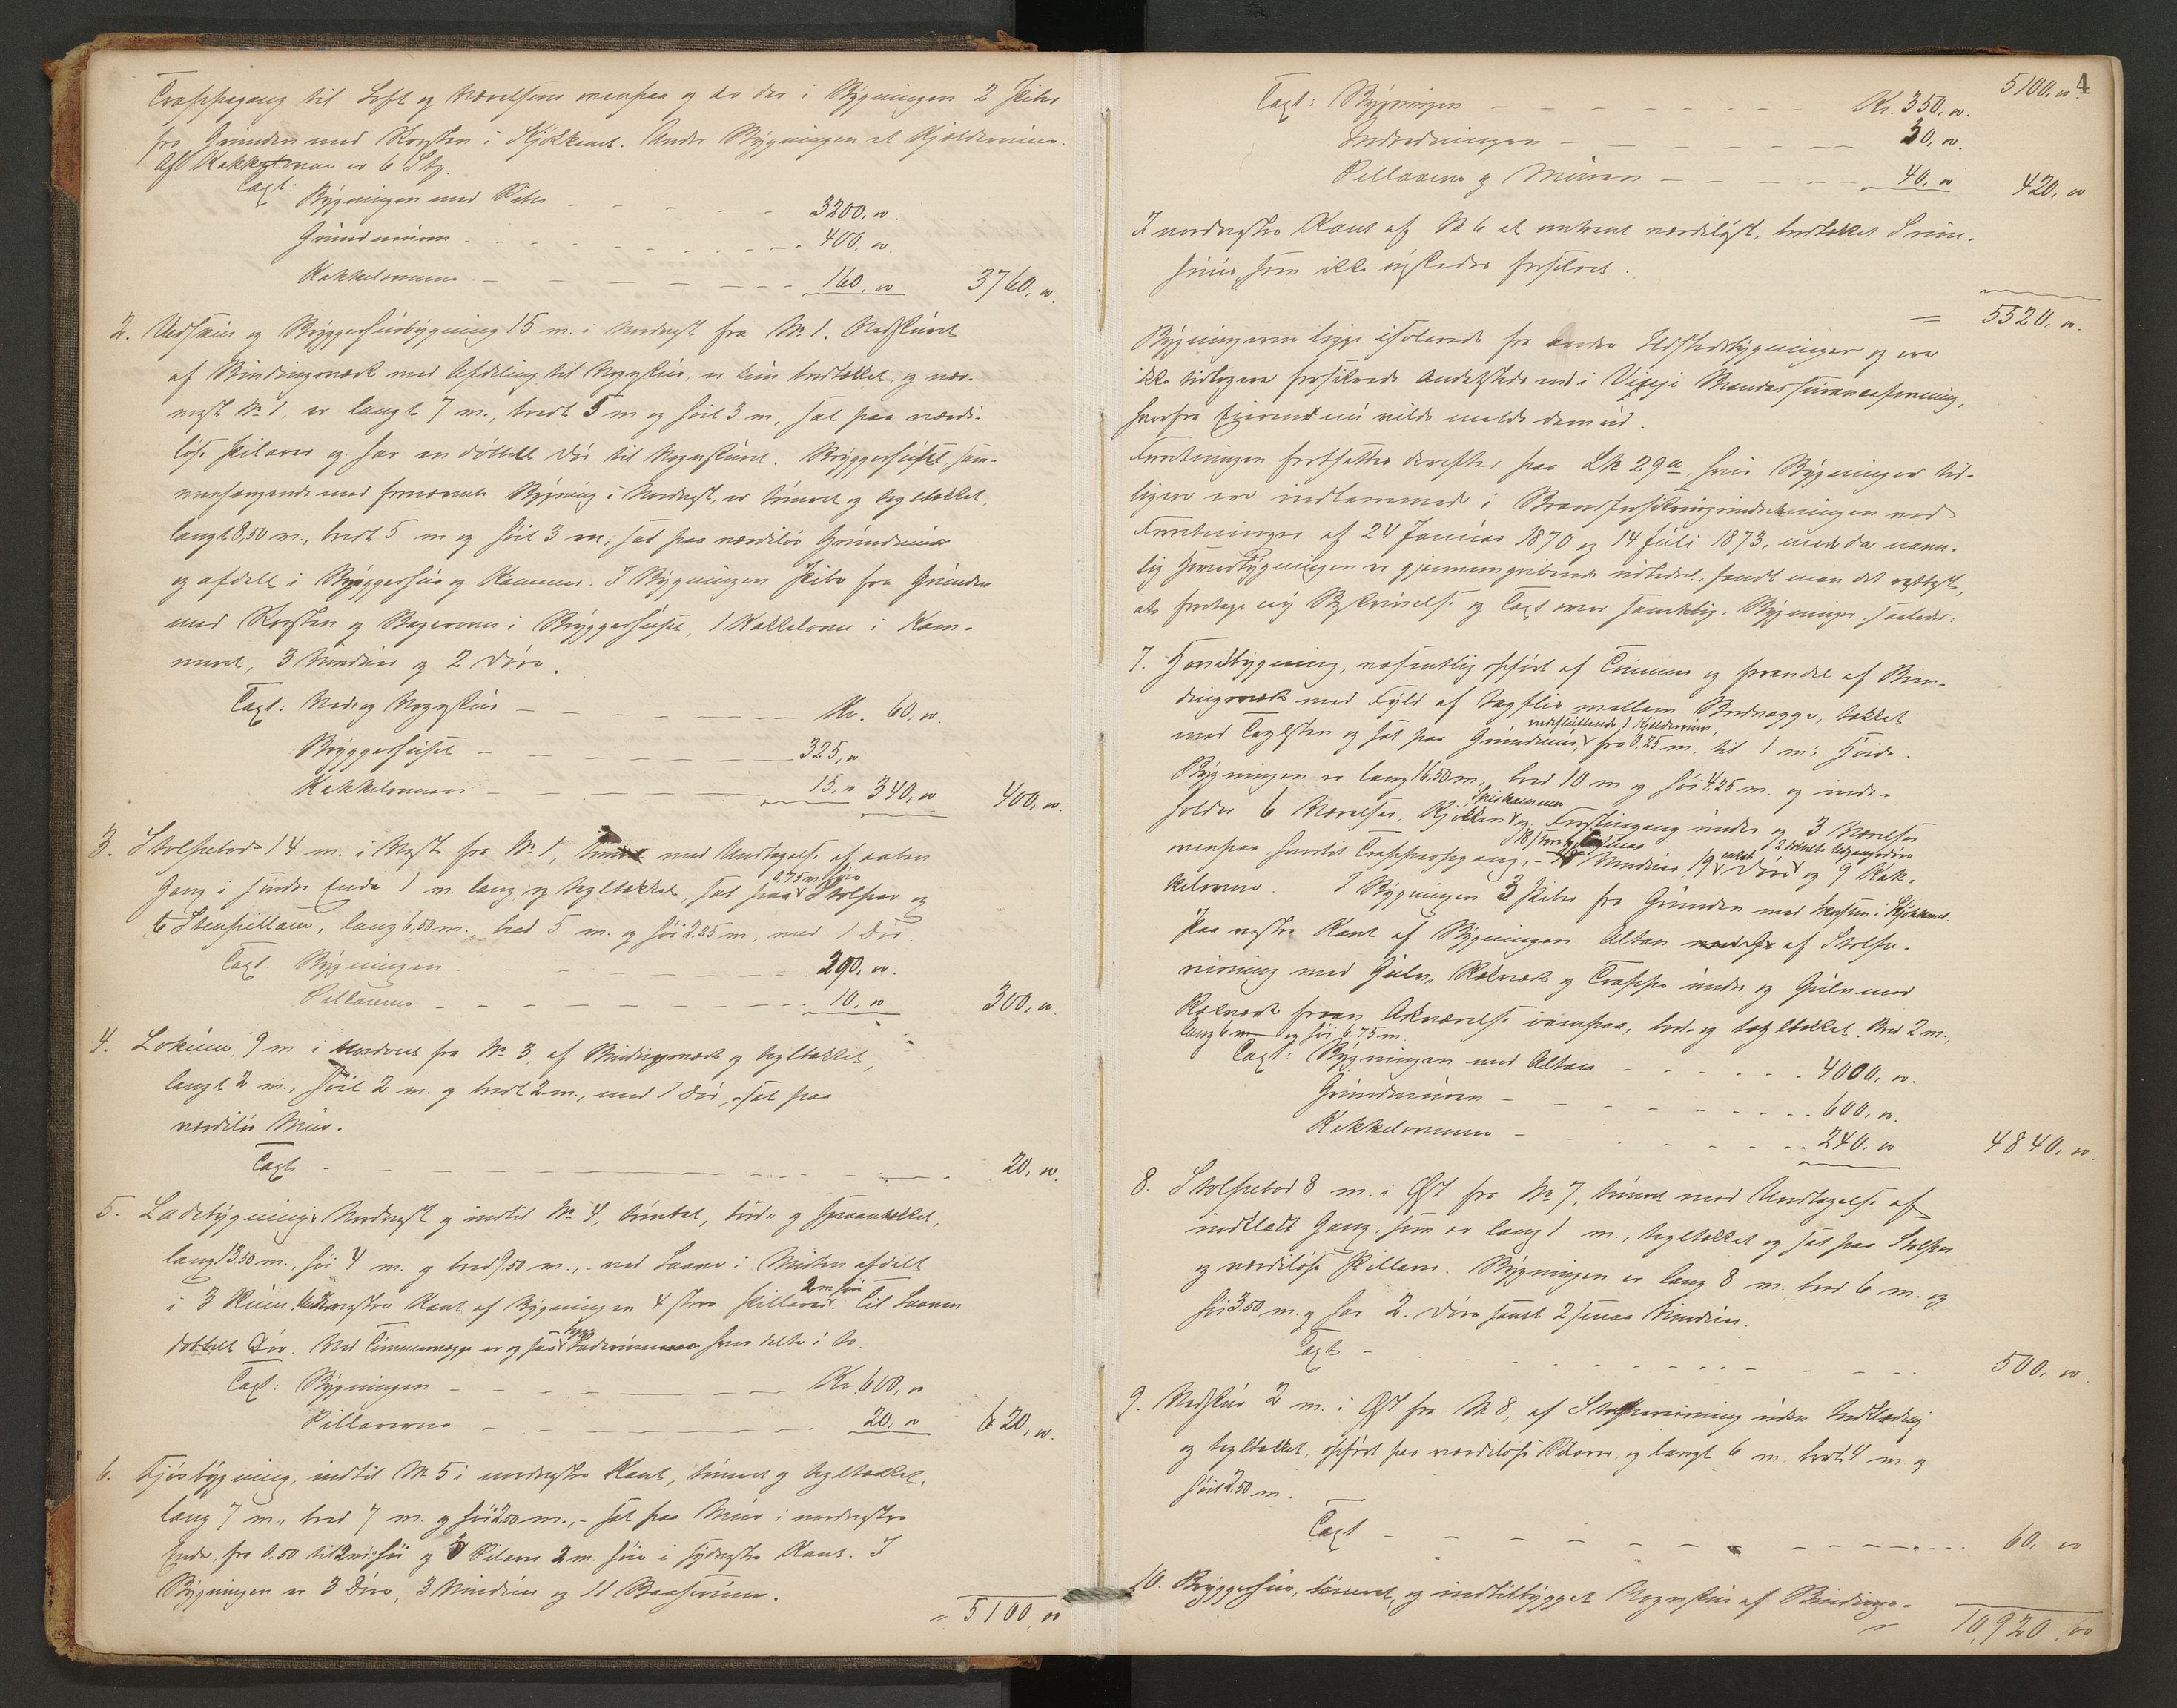 Trappegang til Loft og Værelserne ovenpaa og to der i Bygningen 2 Piber
fra Grunden med Skorsten i Kjøkkenet. Under Bygningen et Kjælderrum.
Af Kakkelovne er 6 Stk.
Taxt: Bygningen med Piber 3200,00.
Grundmuren 400,00
Kakkelovnene 160,00 3760,00.
2. Vedskur og Bryggerhusbygning 15 m. i Nordvest fra No 1. Vedskuret
af Bindingsværk med Afdeling til Vognskur, er kun bordtækket, og nær-
mest No 1, er langt 7 m., bredt 5 m og høit 3 m, sat paa værdi-
løse Pilarer og har en dobbelt Dør til Vognskuret. Bryggerhuset, sam-
menhængende med fornævnte Bygning i Nordvest, er tømret og tegltækket,
langt 8,50 m., bredt 5 m og høit 3 m; sat paa værdiløs Grundmur
og afdelt i Bryggerhus og Kammer. I Bygningen Pibe fra Grunden
med Skorsten og Bagerovn i Bryggerhuset, 1 Kakkelovn i Kam-
meret, 3 Vinduer og 2 Døre.
Taxt: Ved og Vognskur Kr. 60,00.
Bryggerhuset 325,00
Kakkelovnen 15,00 340,00 400,00.
3. Stolpebod 14 m. i Vest fra No 1, tømret med Undtagelse af aaben
Gang i søndre Ende 1 m. lang og tegltækket, sat paa 0,75 m. høie Stolper og
6 Stenpillarer, lang 6,50 m., bred 5 m. og høi 2.85 m, med 1 Dør.
Taxt. Bygningen 290,00.
Pillarerne 10,00 300,00.
4. Lokum, 9 m i Nordvest fra No 3, af Bindingsværk og tegltækket,
langt 2 m., høit 2 m. og bredt 2 m., med 1 Dør, sat paa
værdiløs Mur.
Taxt 20,00.
5. Ladebygning i Nordvest og indtil No 4, tømret, bord- og spaantækket,
lang 13,50 m., høi 4 m. og bred 9,50 m., ved Laave i Midten afdelt
i 3 Rum. Under vestre Kant af Bygningen 4 store Pillarer 2 m høie. Til Laaven
dobbelt Dør. Ved Tømmervægge er og saa hver delte i to.
Taxt: Bygningen Kr. 600,00
Pillarerne 20,00 620,00.
6. Fjøsbygning, indtil No 5 i nordvestre Kant, tømret og tegltækket,
lang 7 m., bred 7 m. og høi 2,50 m., sat paa Mur i nordvestre
Ende, fra 0,50 til 2 m: høi og 3 Pilarer 2 m. høie i sydvestre Kant. I
Bygningen er 3 Døre, 3 Vinduer og 11 Baaserum.
= 5100,00
4
5100,00.
Taxt: Bygningen Kr. 350,00.
Indredningen 30,00.
Pillarerne og Muren 40,00 420,00
I nordvestre Kant af No 6 et omtrent værdiløst, bordtækket Svine-
huus, som ikke ønskedes forsikret.
= 5520,00.
Bygningerne ligge isolerede fra andre Ildstedsbygninger og ere
ikke tidligere forsikrede andetsteds end i Brandassuranceforening,
hvorfra Eieren nu vilde melde dem ud.
Forretningen fortsattes derefter paa Lb 29a, hvis Bygninger tid-
ligere ere indlemmede i Brandforsikringsindretningen ved
Forretninger af 24 Januar 1870 og 14 Juli 1873, men da navn-
lig Hovedbygningen er gjennemgribende udbedret, fandt man det rettest,
at foretage ny Beskrivelse og Taxt over samtlige Bygninger, saaledes:
7. Hovedbygning, væsentlig opført af Tømmer og for en Del af Bin-
dingsværk med Fyld af Teglsten mellem Bordvægge, tækket
med Teglsten og sat paa Grundmur, indesluttende 1 Kjælderrum, fra 0,25 m. til 1 m: Høide.
Bygningen er lang 16,50 m, bred 10 m og høi 4.25 m. og inde-
holder 6 Værelser, Kjøkken, Spiskammer og Forstuegang under og 3 Værelser
ovenpaa, hvortil Trappeopgang, Vinduer, 19 enkelt Døre 2 dobbelte Udgangsdøre og 9 Kak-
kelovne. I Bygningen 3 Piber fra Grunden med Skorsten i Kjøkkenet.
Paa vestre Kant af Bygningen Altan af Stolpe-
reisning med Gulv, Rækværk og Trappe under og Gulv med
Rækværk foran Qvistværelse ovenpaa, bord- og tegltækket. Bred 2 m.,
lang 6 m og høi 6,75 m
Taxt: Bygningen med Altan 4000,00.
Grundmuren 600,00.
Kakkelovnene 240,00 4840,00.
8. Stolpebod 8 m. i Øst fra No 7, tømret med Undtagelse af
indklædt Gang, som er lang 1 m., tegltækket og sat paa Stolper
og værdiløse Pillarer. Bygningen er lang 8 m. bred 6 m. og
høi 3,50 m. og har 2 Døre samt 2 smaa Vinduer.
Taxt 500,00
9. Vedskur 2 m. i Øst fra No 8, af Stolpereisning uden Indklædning
og tegltækket, opført paa værdiløse Pilarer, og langt 6 m. bredt 4 m og
høit 2,50 m.
Taxt 60,00
10. Bryggerhus, tømret og indtilbygget Vognskur af Bindings-
= 10,920,00